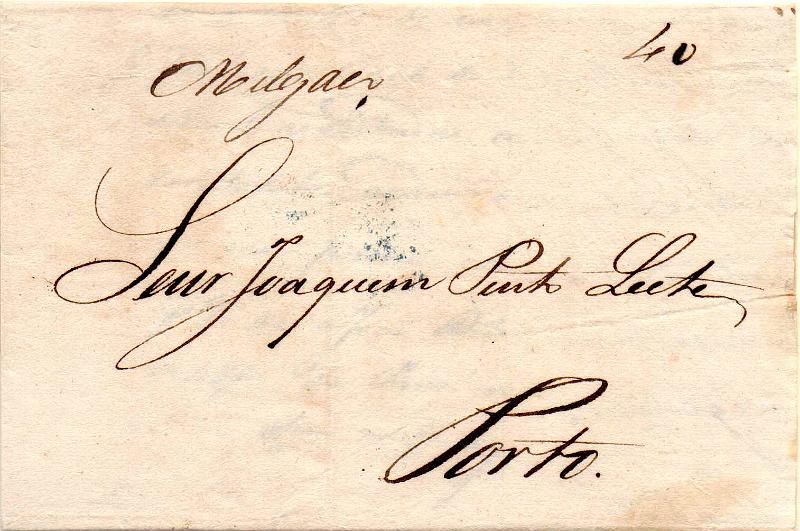 Melgaço
40
Senr Joaquim Pinto Leite
Porto.